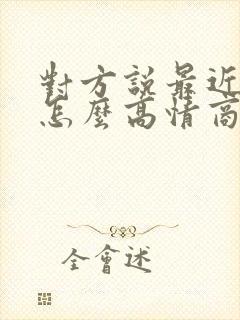 對方說最近
怎麼高情商
全會述